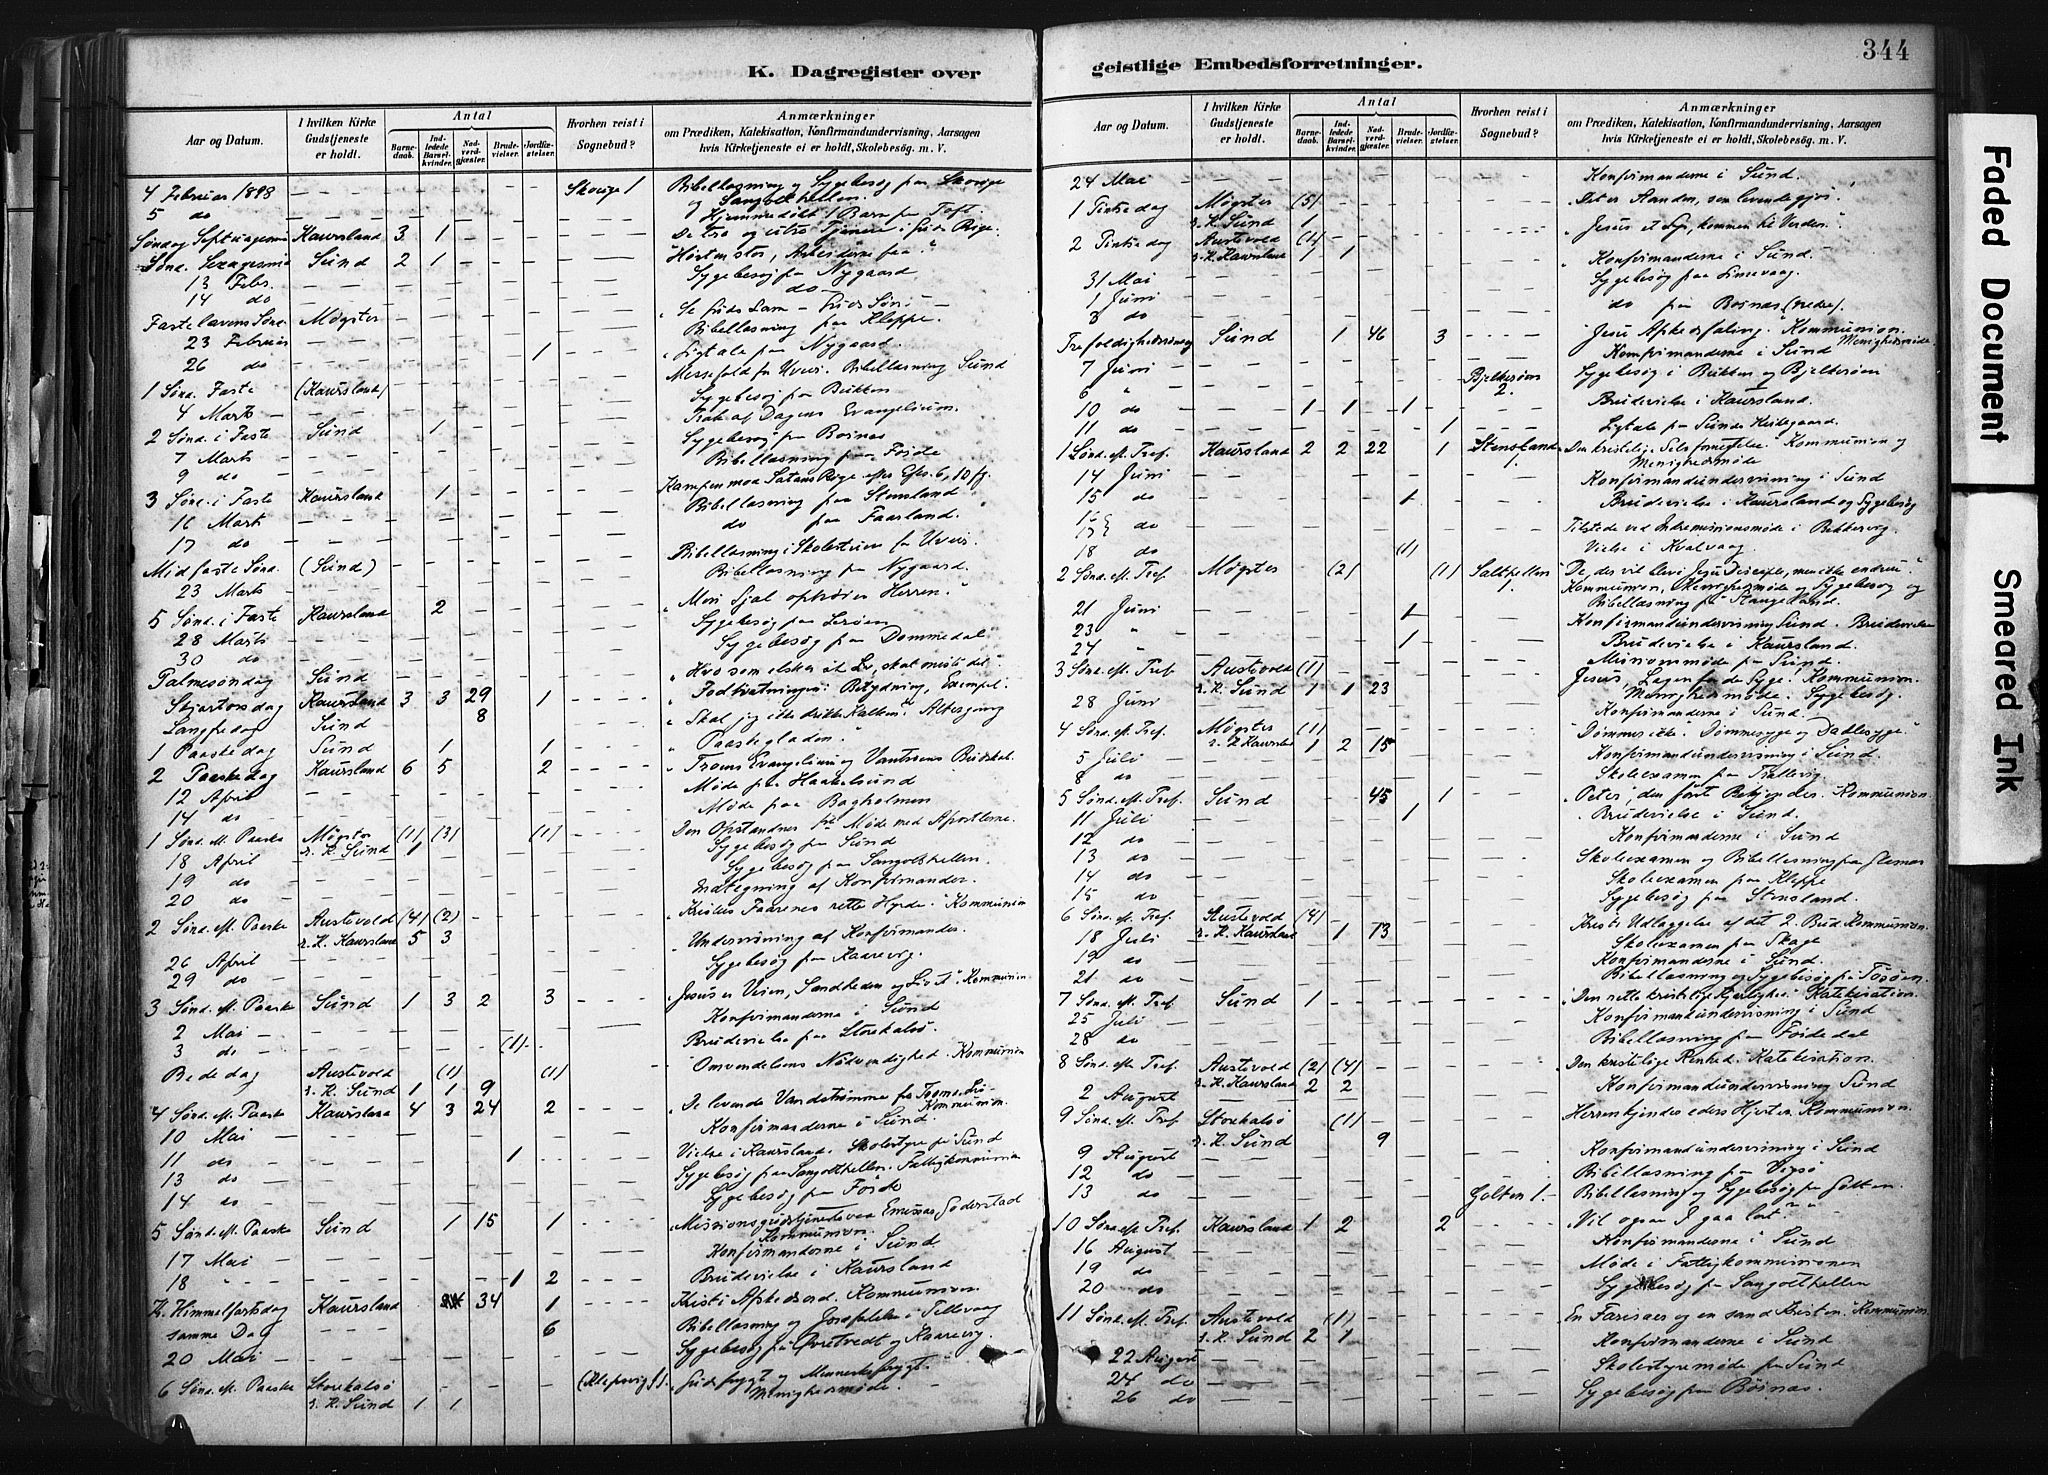 344
K. Dagregister over
geistlige Embedsforretninger.
Aar og Datum.
I hvilken Kirke Gudstjeneste er holdt.
Antal
Barnedaab.
Indledede Barselkvinder.
Nadverdgjæster.
Brudevielser.
Jordfæstelser.
Hvorhen reist i Sognebud?
Anmærkninger
om Prædiken, Katekisation, Konfirmandundervisning, Aarsagen
hvis Kirketjeneste ei er holdt, Skolebesøg. m. V.
4 Februar 1898 Skorige 1 Bibellæsning og Sygebesøg paa Skorige
5 do
Søndag Septuagesima Kaursland 3 1
Sønd. Sexagesima Sund 2 1
13 Febr. Sygebesøg paa Nygaard
14 do do
Fastelavens Sønd. Møgster
23 Februar Bibellæsning paa Kleppe.
26 do 1 Ligtale paa Nygaard.
1 Sønd. Faste (Kaursland) Messefald for Uveir. Bibellæsning Sund
4 Marts Sygebesøg paa Bukken
2 Sønd. i Faste Sund 1 Dagens Evangelium.
7 Marts Sygebesøg paa Boinæs
9 do Bibellæsning paa Føide
3 Sønd. i Faste Kaursland 1 Kampen mod Satans Rige efter Efes. 6, 10 fg.
16 Marts Bibellæsning paa Stensland
17 do do paa Faarland.
Midfaste Sønd. (Sund) for Uveir.
23 Marts Bibellæsning paa Nygaard.
5 Sønd. i Faste Kaursland 2 Min Sjæl ophøier Herren"
28 Marts Sygebesøg paa Lerøen
30 do Sygebesøg paa Dommedal
Palmesøndag Sund Hvo som elsker sit Liv, skal miste det".
Skjærtorsdag Kaursland 3 3 29 1 Fodtvætningen: Betydning, Exempel.
Langfredag Sund 8 Skal jeg ikke drikke Kalken" Altergang
1 Paaskedag Sund 1 1 Paaskeglæden."
2 Paaskedag Kaursland 6 5 2 Troens Evangelium og Vantroens Budskab.
12 April Møde paa Haakelsund
14 do Møde paa Bagholmen
1 Sønd. ef. Paaske Møgster (1) (3) (1) Den Opstandnes Møde med Apostlerne.
r. K. Sund 1
18 April Sygebesøg paa Sund
19 do Sygebesøg paa Sangolthellen.
20 do Indtegning af Konfirmander.
2 Sønd. ef. Paaske Austevold (4) (2) Kristus Faarenes rette Hyrde. Kommunion
r. K. Kaursland 5 3
26 April Undervisning af Konfirmander.
29 do Sygebesøg paa Kaarevig.
3 Sønd. ef. Paaske Sund 1 3 2 3 Jesus er Veien, Sandheden og Livet" Kommunion
2 Mai Konfirmanderne i Sund
3 do (1) Brudevielse paa Storekalsø.
Bededag Austevold (1) (1) Omvendelsens Nødvendighed. Kommunion
r. K. Sund 1 1 9
4 Sønd. ef. Paaske Kaursland 4 3 24 2 De levende Vandstrømme
Kommunion.
10 Mai Konfirmanderne i Sund.
11 do 1 Vielse i Kaursland. Skolestyre paa Sund
13 do Sygebesøg paa Sangolthellen. Fattigkommission
14 do Sygebesøg paa Föide
5 Sønd. ef. Paaske Sund 1 15 1 Missionsgudstjeneste ved Emissær Søderstad
Kommunion.
17 Mai Konfirmanderne i Sund
18 " 1 2 Brudevielse i Kaursland
Kr. Himmelfartsdag Kaursland 34 1 Kristi Afskedsord. Kommunion
samme Dag 6 Bibellæsning og Jordfæstelse i Tellevaag
20 Mai Sygebesøg paa og Kaarevig.
6 Sønd. ef. Paaske Storekalsø (Klepsvig) 1. Gudsfrygt og Menneskefrygt."
r. K. Sund 1 1 Menighedsmøde.
Aar og Datum.
I hvilken Kirke Gudstjeneste er holdt.
Antal
Barnedaab.
Indledede Barselkvinder.
Nadverdgjæster.
Brudevielser.
Jordfæstelser.
Hvorhen reist i Sognebud?
Anmærkninger
om Prædiken, Katekisation, Konfirmandundervisning, Aarsagen
hvis Kirketjeneste ei er holdt, Skolebesøg. m. V.
24 Mai Konfirmanderne i Sund.
1 Pintsedag Møgster (5) Det er Aanden, som levendegjør.
r. K. Sund 1
2 Pintsedag Austevold (1) Jesus et Lys, kommen til Verden."
r. K. Kaursland 1 1
31 Mai Konfirmanderne i Sund.
1 Juni Sygebesøg paa Limevaag.
3 do do paa Boinæs (nedre).
Trefoldighedssøndag Sund 1 46 3 Jesu Afskedsfaling. Kommunion.
Menighedsmøde.
7 Juni Konfirmanderne i Sund
6 " Bjelkerøen 2. Sygebesøg i Bukken og Bjelkerøen
10 do 1 1 1 Brudevielse i Kaursland.
11 do 1 Ligtale paa Sunds Hvilegaard.
1 Sønd. ef. Tref. Kaursland 2 2 22 1 Stensland 1. Den kristelige Selvfornegtelse." Kommunion og
Menighedsmøde
14 Juni Konfirmandundervisning i Sund
15 do 1 Brudevielse i Kaursland og Sygebesøg
16 17 do Tilstede ved Indremissionsmøde i Bekkervig
18 do (1) Vielse i Kvalvaag.
2 Sønd. ef. Tref. Møgster (2) (1) Salthellen 1. De, der vil blive Jesu Disciple, men ikke endnu"
Kommunion, Menighedsmøde og Sygebesøg og
Bibellæsning paa Haugeland.
21 Juni 1 Konfirmandundervisning Sund. Brudevielse
23 "
24 " 1 Brudevielse i Kaursland.
Missionsmøde paa Sund.
3 Sønd. ef. Tref. Austevold (1) Jesus, Lægen for de Syge". Kommunion.
r. K. Sund 1 1 23 Menighedsmøde. Sygebesøg.
28 Juni Konfirmanderne i Sund.
4 Sønd. ef. Tref. Møgster (1) Dømmer ikke. Dømmesyge og Dadlesyge".
r. K. Kaursland 1 2 15
5 Juli Konfirmandundervisning i Sund.
8 do Skoleexamen paa Trellevig.
5 Sønd. ef. Tref. Sund 45 1 Peter, den først Bekjender. Kommunion.
11 Juli 1 Brudevielse i Sund.
12 do Konfirmanderne i Sund
13 do Skoleexamen og Bibellæsning paa Glesnæs
14 do Skoleexamen paa Kleppe
15 do Sygebesøg paa Stensland.
6 Sønd. ef. Tref. Austevold (4) Kristi Udlæggelse af det 2. Bud. Kommunion.
r. K. Kaursland 1 13
18 Juli Skoleexamen paa Skage
19 do Konfirmanderne i Sund.
21 do Bibellæsning og Sygebesøg paa Tosøen
7 Sønd. ef. Tref. Sund 1 Den rette kristelige Kjærlighed". Katekisation.
25 Juli Konfirmandundervisning i Sund
28 do Bibellæsning paa Föidedal
8 Sønd. ef. Tref. Austevold (2) (4) Den kristelige Renhed. Katekisation.
r. K. Kaursland 2 2
2 August Konfirmandundervisning Sund
9 Sønd. ef. Tref. Storekalsø (1) Herren kjender eders Hjerter. Kommunion.
r. K. Sund 9
9 August Konfirmandundervisning i Sund
12 do Bibellæsning paa Vigsø
13 do Golten 1. Bibellæsning og Sygebesøg paa Golten.
10 Sønd. ef. Tref. Kaursland 1 2 2 Vil ogsaa I gaa bort?"
16 August Konfirmanderne i Sund
19 do Møde i Fattigkommissionen
20 do Sygebesøg paa Sangolthellen
11 Sønd. ef. Tref. Austevold (1) En Farisæer og en sand Kristen. Kommunion.
r. K. Sund 2 1
22 August Konfirmanderne i Sund
24 do Skolestyremøde paa Sund
26 do Sygebesøg paa Böinæs.
Faded Document
Smeared Ink